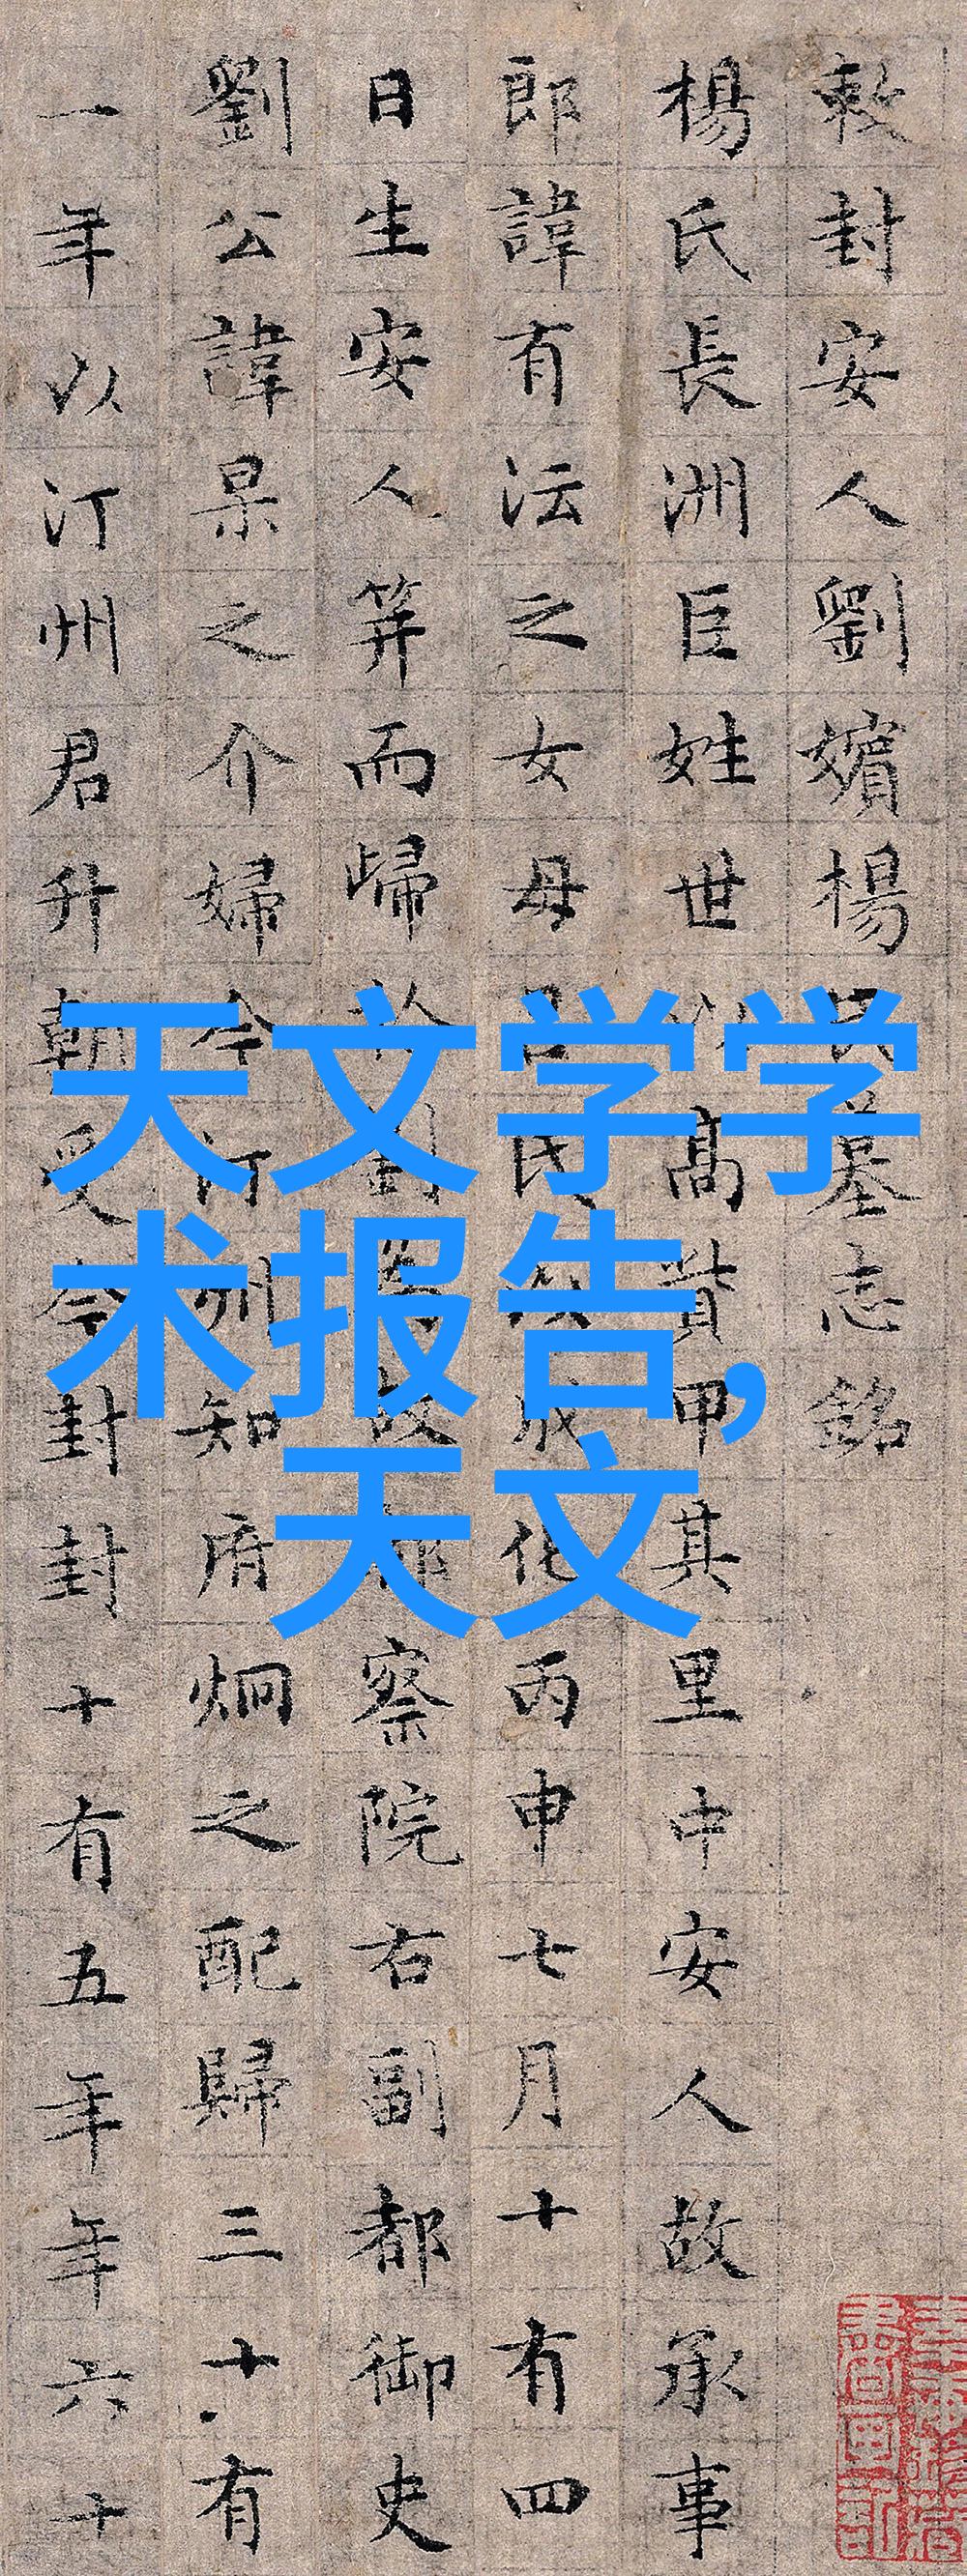 敕封安人劉嬪楊氏墓志銘
楊氏長洲巨姓世以高貲甲其里中安人故承事
郎諱有沄之女母呂氏以成化丙申七月十有四
日生安人笄而歸於劉為故都察院右副都御史
劉公諱杲之介婦今汀州知府炯之配歸三十有
一年以汀州君升朝受今封封十有五年年六十
天文学学
术报告,
天文